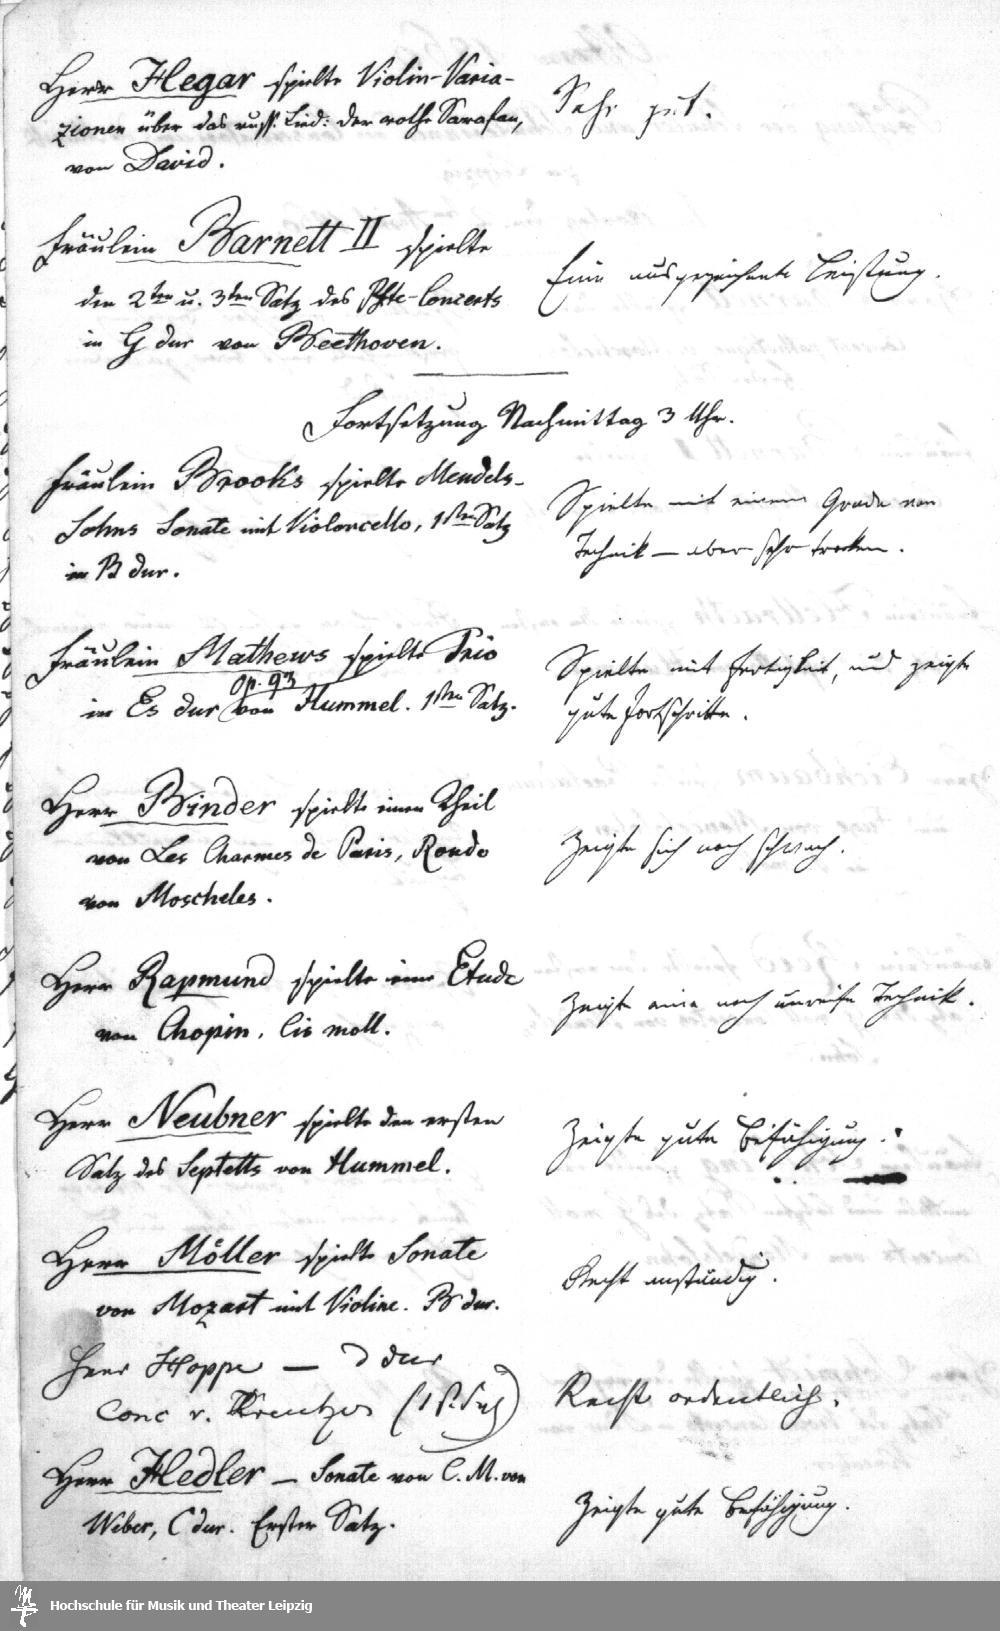 Herr Hegar spielte Violin-Varia-
zionen über das russ. Lied: der rothe Sarafan,
von David.
Sehr gut.
Fräulein Barnett II spielte
den 2ten u. 3ten Satz des Pfte-Concerts
in G dur von Beethoven.
Eine ausgezeichnete Leistung.
Fortsetzung Nachmittag 3 Uhr.
Fräulein Brooks spielte Mendels-
sohns Sonate mit Violoncello, 1sten Satz
in B dur.
Spielte mit einem Grade von
Technik – aber sehr trocken.
Fräulein Mathews spielte Trio
Op. 93
in Es dur von Hummel. 1sten Satz.
Spielte mit Fertigkeit, und zeigte
gute Fortschritte.
Herr Binder spielte einen Theil
von Les Charmes de Paris, Rondo
von Moscheles.
Zeigte sich noch schwach.
Herr Rapmund spielte eine Etude
von Chopin, Cis moll.
Zeigte eine noch unreife Technik.
Herr Neubner spielte den ersten
Satz des Septetts von Hummel.
Zeigte gute Befähigung.
Herr Möller spielte Sonate
von Mozart mit Violine. B dur.
Recht anständig.
Herr Hoppe — D dur
Conc v. Kreutzer (1 St. Satz)
Recht ordentlich.
Herr Hedler – Sonate von C. M. von
Weber, C dur. Erster Satz.
Zeigte gute Befähigung.
Hochschule für Musik und Theater Leipzig